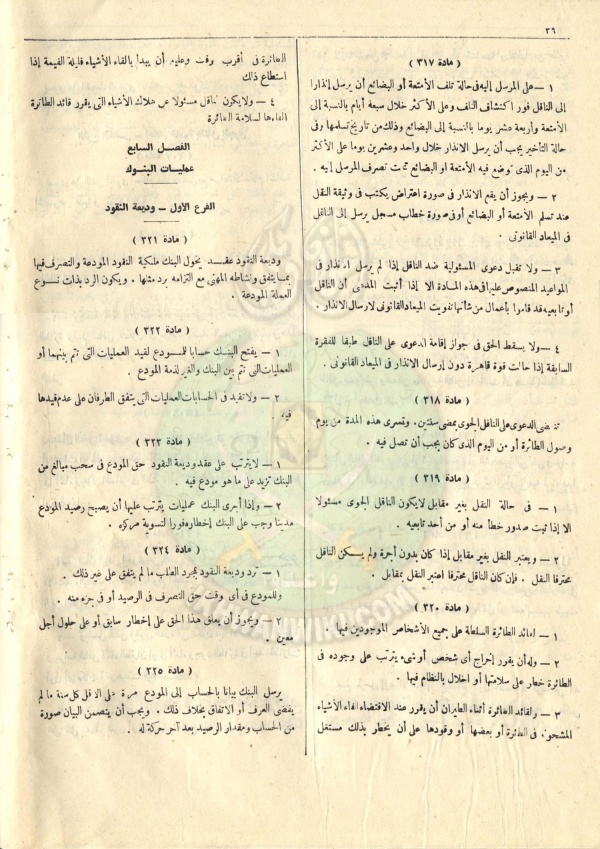 ٣٦
( مادة ٣١٧ )
١ – على المرسل إليه فى حالة تلف الأمتعة أو البضائع أن يرسل إنذارا
إلى الناقل فور اكتشاف التلف وعلى الأكثر خلال سبعة أيام بالنسبة إلى
الأمتعة وأربعة عشر يوما بالنسبة إلى البضائع وذلك من تاريخ تسلمها وفى
حالة التأخير يجب أن يرسل الانذار خلال واحد وعشرين يوما على الأكثر
من اليوم الذى توضع فيه الأمتعة او البضائع تحت تصرف المرسل إليه .
٢ – ويجوز أن يقع الانذار فى صورة اعتراض يكتب فى وثيقة النقل
عند تسلم الأمتعة أو البضائع أو فى صورة خطاب مسجل يرسل إلى الناقل
فى الميعاد القانونى .
٣ – ولا تقبل دعوى المسئولية ضد الناقل إذا لم يرسل الانذار فى
المواعيد المنصوص عليها فى هذه المادة الا إذا أثبت المدعى أن الناقل
أو تابعيه قد قاموا بأعمال من شأنها تفويت الميعاد القانونى لارسال الانذار .
٤ – ولا يسقط الحق فى جواز إقامة الدعوى على الناقل طبقا للفقرة
السابقة إذا حالت قوة قاهرة دون إرسال الانذار فى الميعاد القانونى .
( مادة ٣١٨ )
تنقضى الدعوى على الناقل الجوى بمضى سنتين . وتسرى هذه المدة من يوم
وصول الطائرة أو من اليوم الذى كان يجب أن تصل فيه .
( مادة ٣١٩ )
١ – فى حالة النقل بغير مقابل لا يكون الناقل الجوى مسئولا
الا إذا ثبت صدور خطأ منه أو من أحد تابعيه .
٢ – ويعتبر النقل بغير مقابل إذا كان بدون أجرة ولم يكن الناقل
محترفا النقل . فإن كان الناقل محترفا اعتبر النقل بمقابل .
( مادة ٣٢٠ )
١ – لقائد الطائرة السلطة على جميع الأشخاص الموجودين فيها .
٢ – وله أن يقرر إخراج أى شخص أو شىء يترتب على وجوده فى
الطائرة خطر على سلامتها أو اخلال بالنظام فيها .
٣ – ولقائد الطائرة أثناء الطيران أن يقرر عند الاقتضاء القاء الأشياء
المشحونة فى الطائرة أو بعضها أو وقودها على أن يخطر بذلك مستغل
الطائرة فى أقرب وقت وعليه أن يبدأ بالقاء الأشياء قليلة القيمة إذا
استطاع ذلك
٤ – ولا يكون الناقل مسئولا عن هلاك الأشياء التى يقرر قائد الطائرة
القاءها لسلامة الطائرة
الفصل السابع
عمليات البنوك
الفرع الأول – وديعة النقود
( مادة ٣٢١ )
وديعة النقود عقد يخول البنك ملكية النقود المودعة والتصرف فيها
بما يتفق ونشاطه المهنى مع التزامه برد مثلها . ويكون الرد بذات نوع
العملة المودعة .
( مادة ٣٢٢ )
١ – يفتح البنك حسابا للمودع لقيد العمليات التى تتم بينهما أو
العمليات التى تتم بين البنك والغير لذمة المودع .
٢ – ولا تقيد فى الحساب العمليات التى يتفق الطرفان على عدم قيدها
فيه .
( مادة ٣٢٣ )
١ – لا يترتب على عقد وديعة النقود حق المودع فى سحب مبالغ من
البنك تزيد على ما هو مودع فيه .
٢ – وإذا أجرى البنك عمليات يترتب عليها أن يصبح رصيد المودع
مدينا وجب على البنك إخطاره فورا لتسوية مركزه .
( مادة ٣٢٤ )
١ – ترد وديعة النقود بمجرد الطلب ما لم يتفق على غير ذلك .
وللمودع فى أى وقت حق التصرف فى الرصيد أو فى جزء منه .
٢ – ويجوز أن يعلق هذا الحق على إخطار سابق أو على حلول أجل
معين .
( مادة ٣٢٥ )
يرسل البنك بيانا بالحساب إلى المودع مرة على الاقل كل سنة ما لم
يقض العرف أو الاتفاق بخلاف ذلك . ويجب أن يتضمن البيان صورة
من الحساب ومقدار الرصيد بعد آخر حركة له .